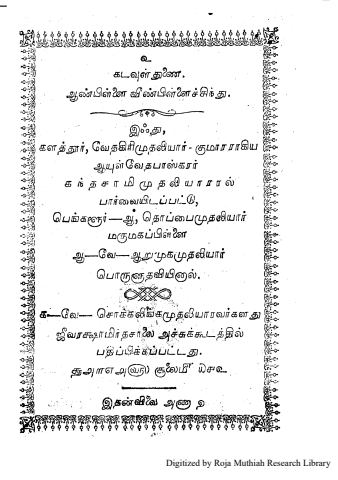 உ
கடவுள் துணை.
ஆண்பிள்ளை வீண்பிள்ளைச்சிந்து.
இஃது,
களத்தூர், வேதகிரிமுதலியார் - குமாரராகிய
ஆயுள்வேதபாஸ்கரர்
கந்தசாமிமுதலியாரால்
பார்வையிடப்பட்டு,
பெங்களூர்—ஆ, தொப்பைமுதலியார்
மருமகப்பிள்ளை
ஆ—வே—ஆறுமுகமுதலியார்
பொருளுதவியினால்.
க—வே— சொக்கலிங்கமுதலியாரவர்களது
ஜீவரக்ஷாமிர்தசாலை அச்சுக்கூடத்தில்
பதிப்பிக்கப்பட்டது.
ஜூலைமீ
இதன்விலை அணா
Digitized by Roja Muthiah Research Library